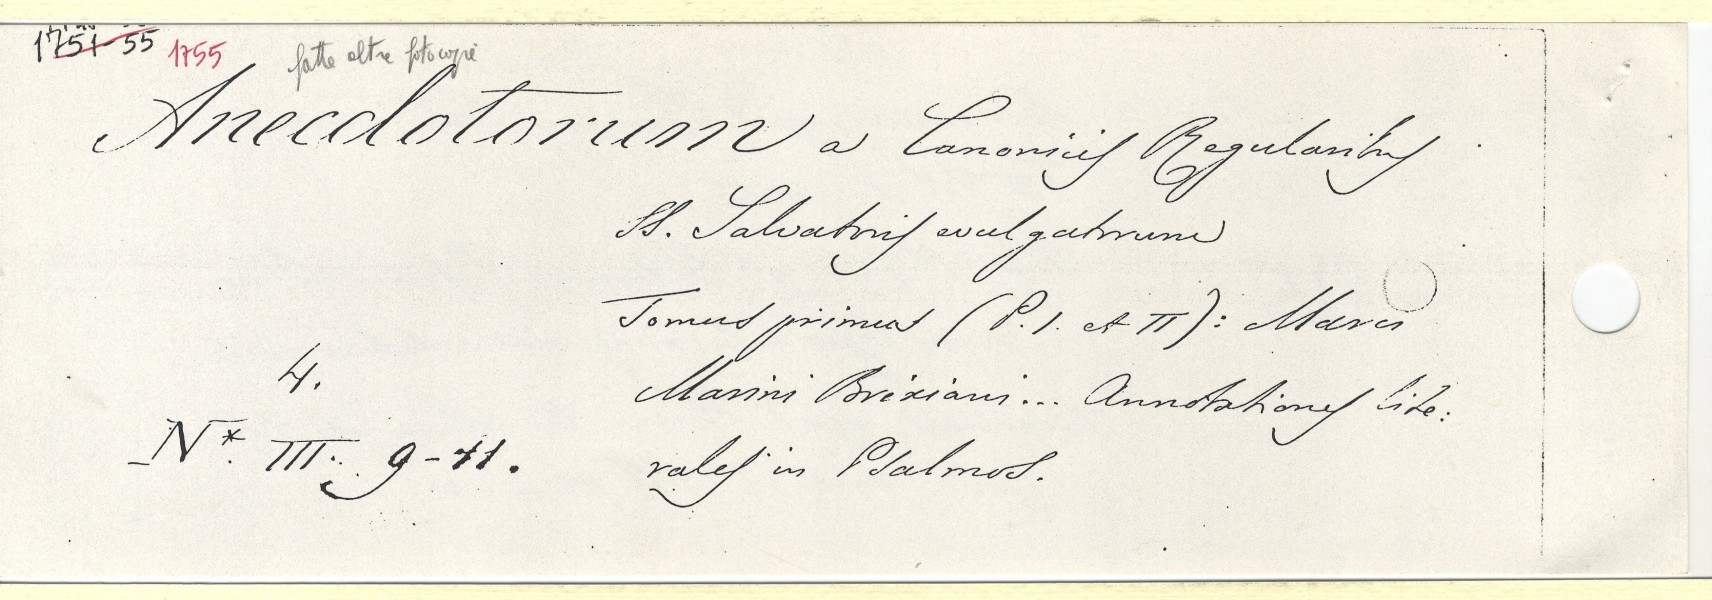 1751-55 1755 fatte altre fotocopie
Anecdotorum a Canonicis Regularibus
SS. Salvatoris evulgatorum
Tomus primus (P. I. et II): Marci
4. Marini Brixiani... Annotationes lite:
N*. III. 9-11. rales in Psalmos.